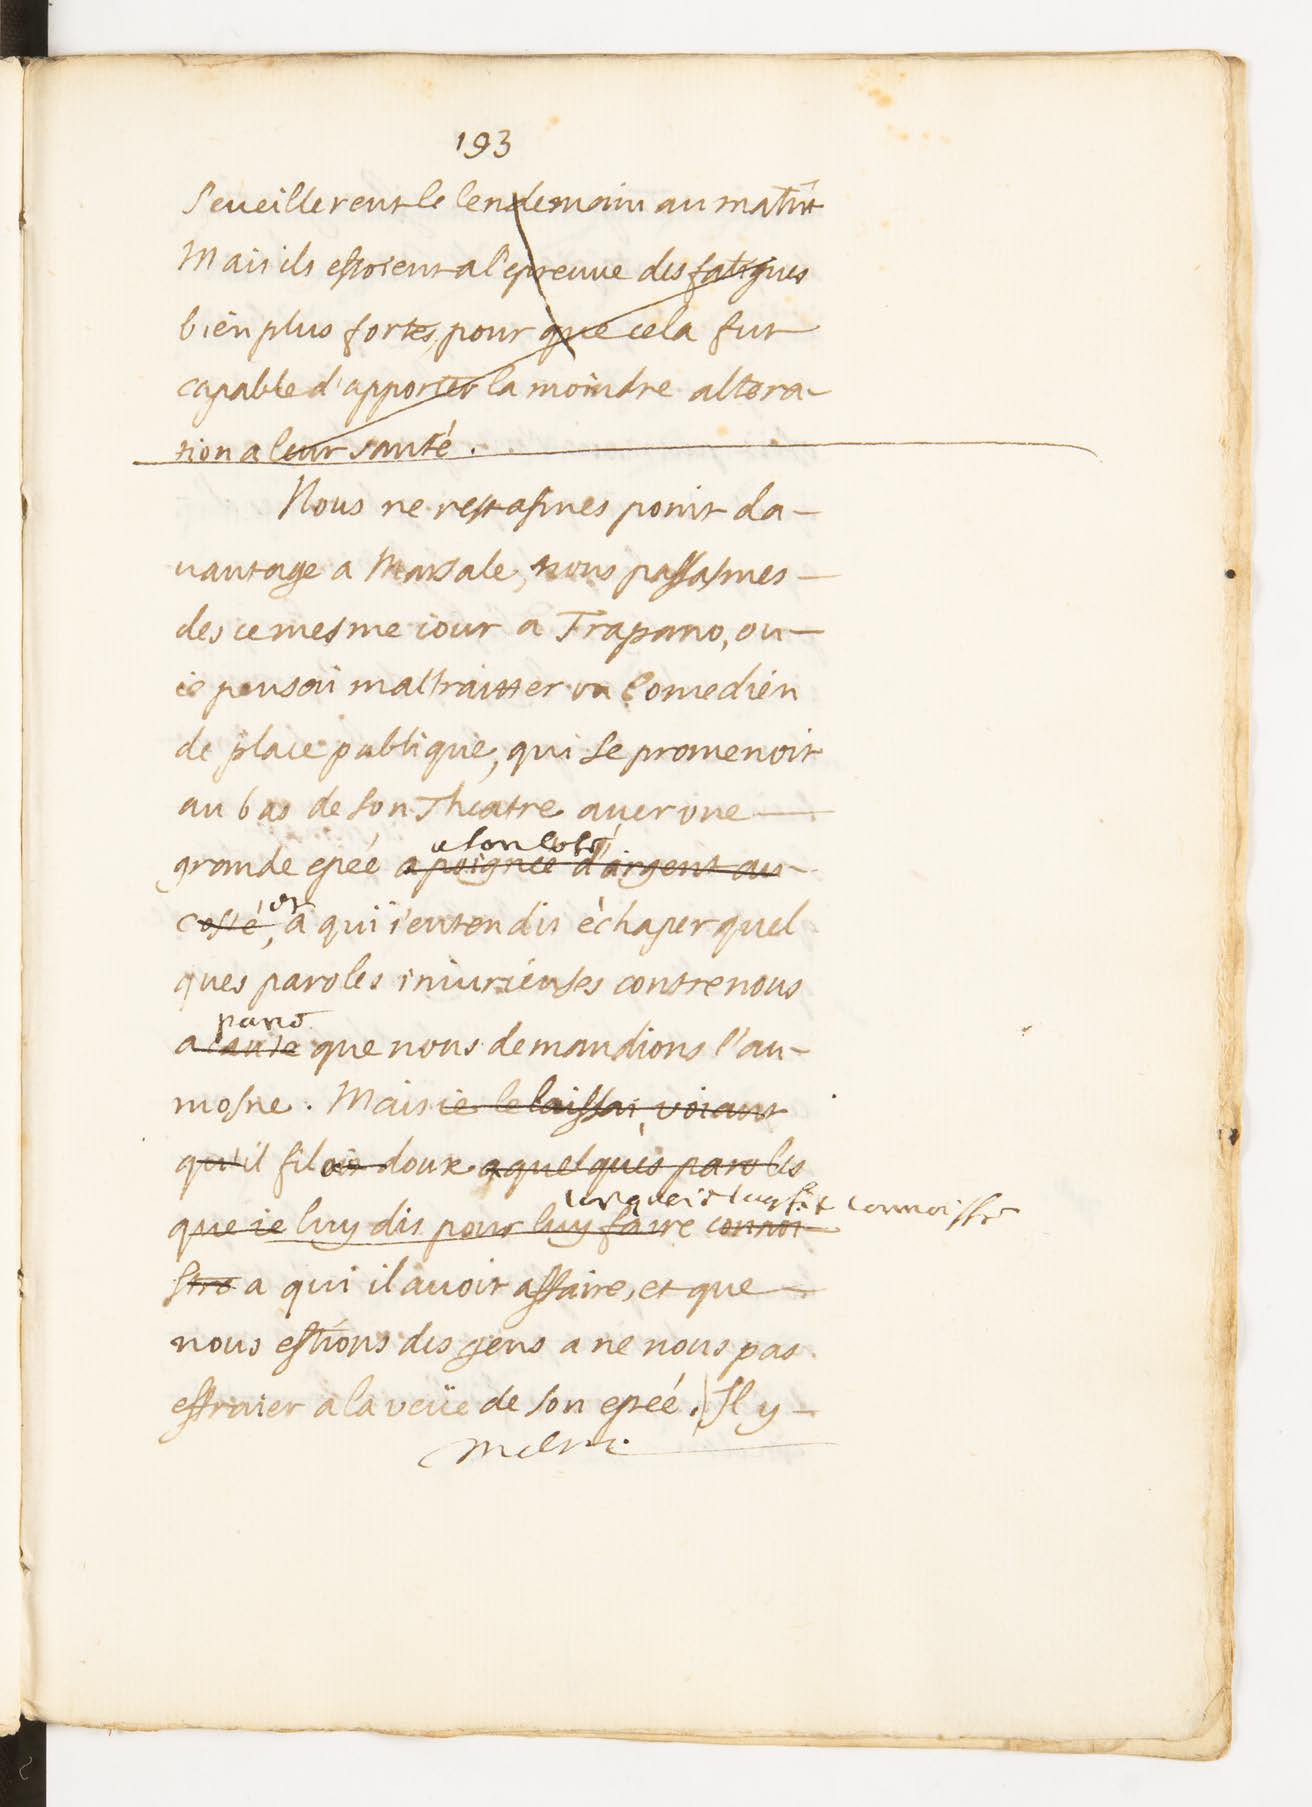 193
s'eueillerent le lendemain au matin
Mais ils estoient a l'epreuue des fatigues
bien plus fortes, pour que cela fut
capable d'apporter la moindre altera-
tion a leur santé.
Nous ne restasmes point da-
uantage a Marsale, nous passasmes
des ce mesme iour a Trapano, ou
ie pensai maltraitter un Comedien
de place publique, qui se promenoit
au bas de son Theatre auec une
a son coté
grande epeé a poignée d'argent au
costé, et a qui i'entendis échaper quel
ques paroles iniurieuses contre nous
parce
a cause que nous demandions l'au-
mosne. Mais ie le laissai, voiant
qu'il filoit doux a quelques paroles
lorsque ie luy fit connoistre
que ie luy dis pour luy faire connoi-
stre a qui il auoit affaire, et que
nous estions des gens a ne nous pas
effraier a la veüe de son epeé. Il y